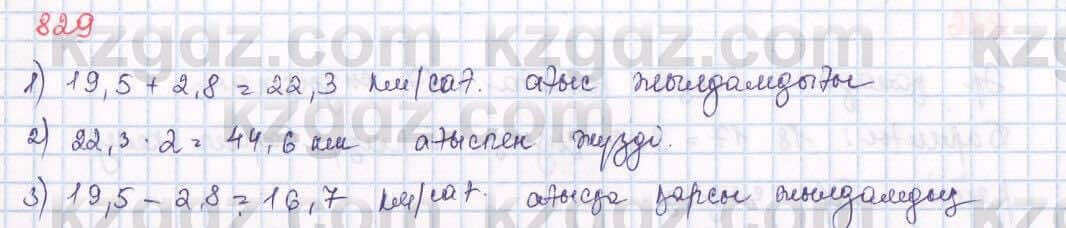 829
1) 19,5 + 2,8 = 22,3 км/сағ. ағыс жылдамдығы
2) 22,3 · 2 = 44,6 км ағыспен жүзді.
3) 19,5 - 2,8 = 16,7 км/сағ. ағысқа қарсы жылдамдық
kzgdz.com